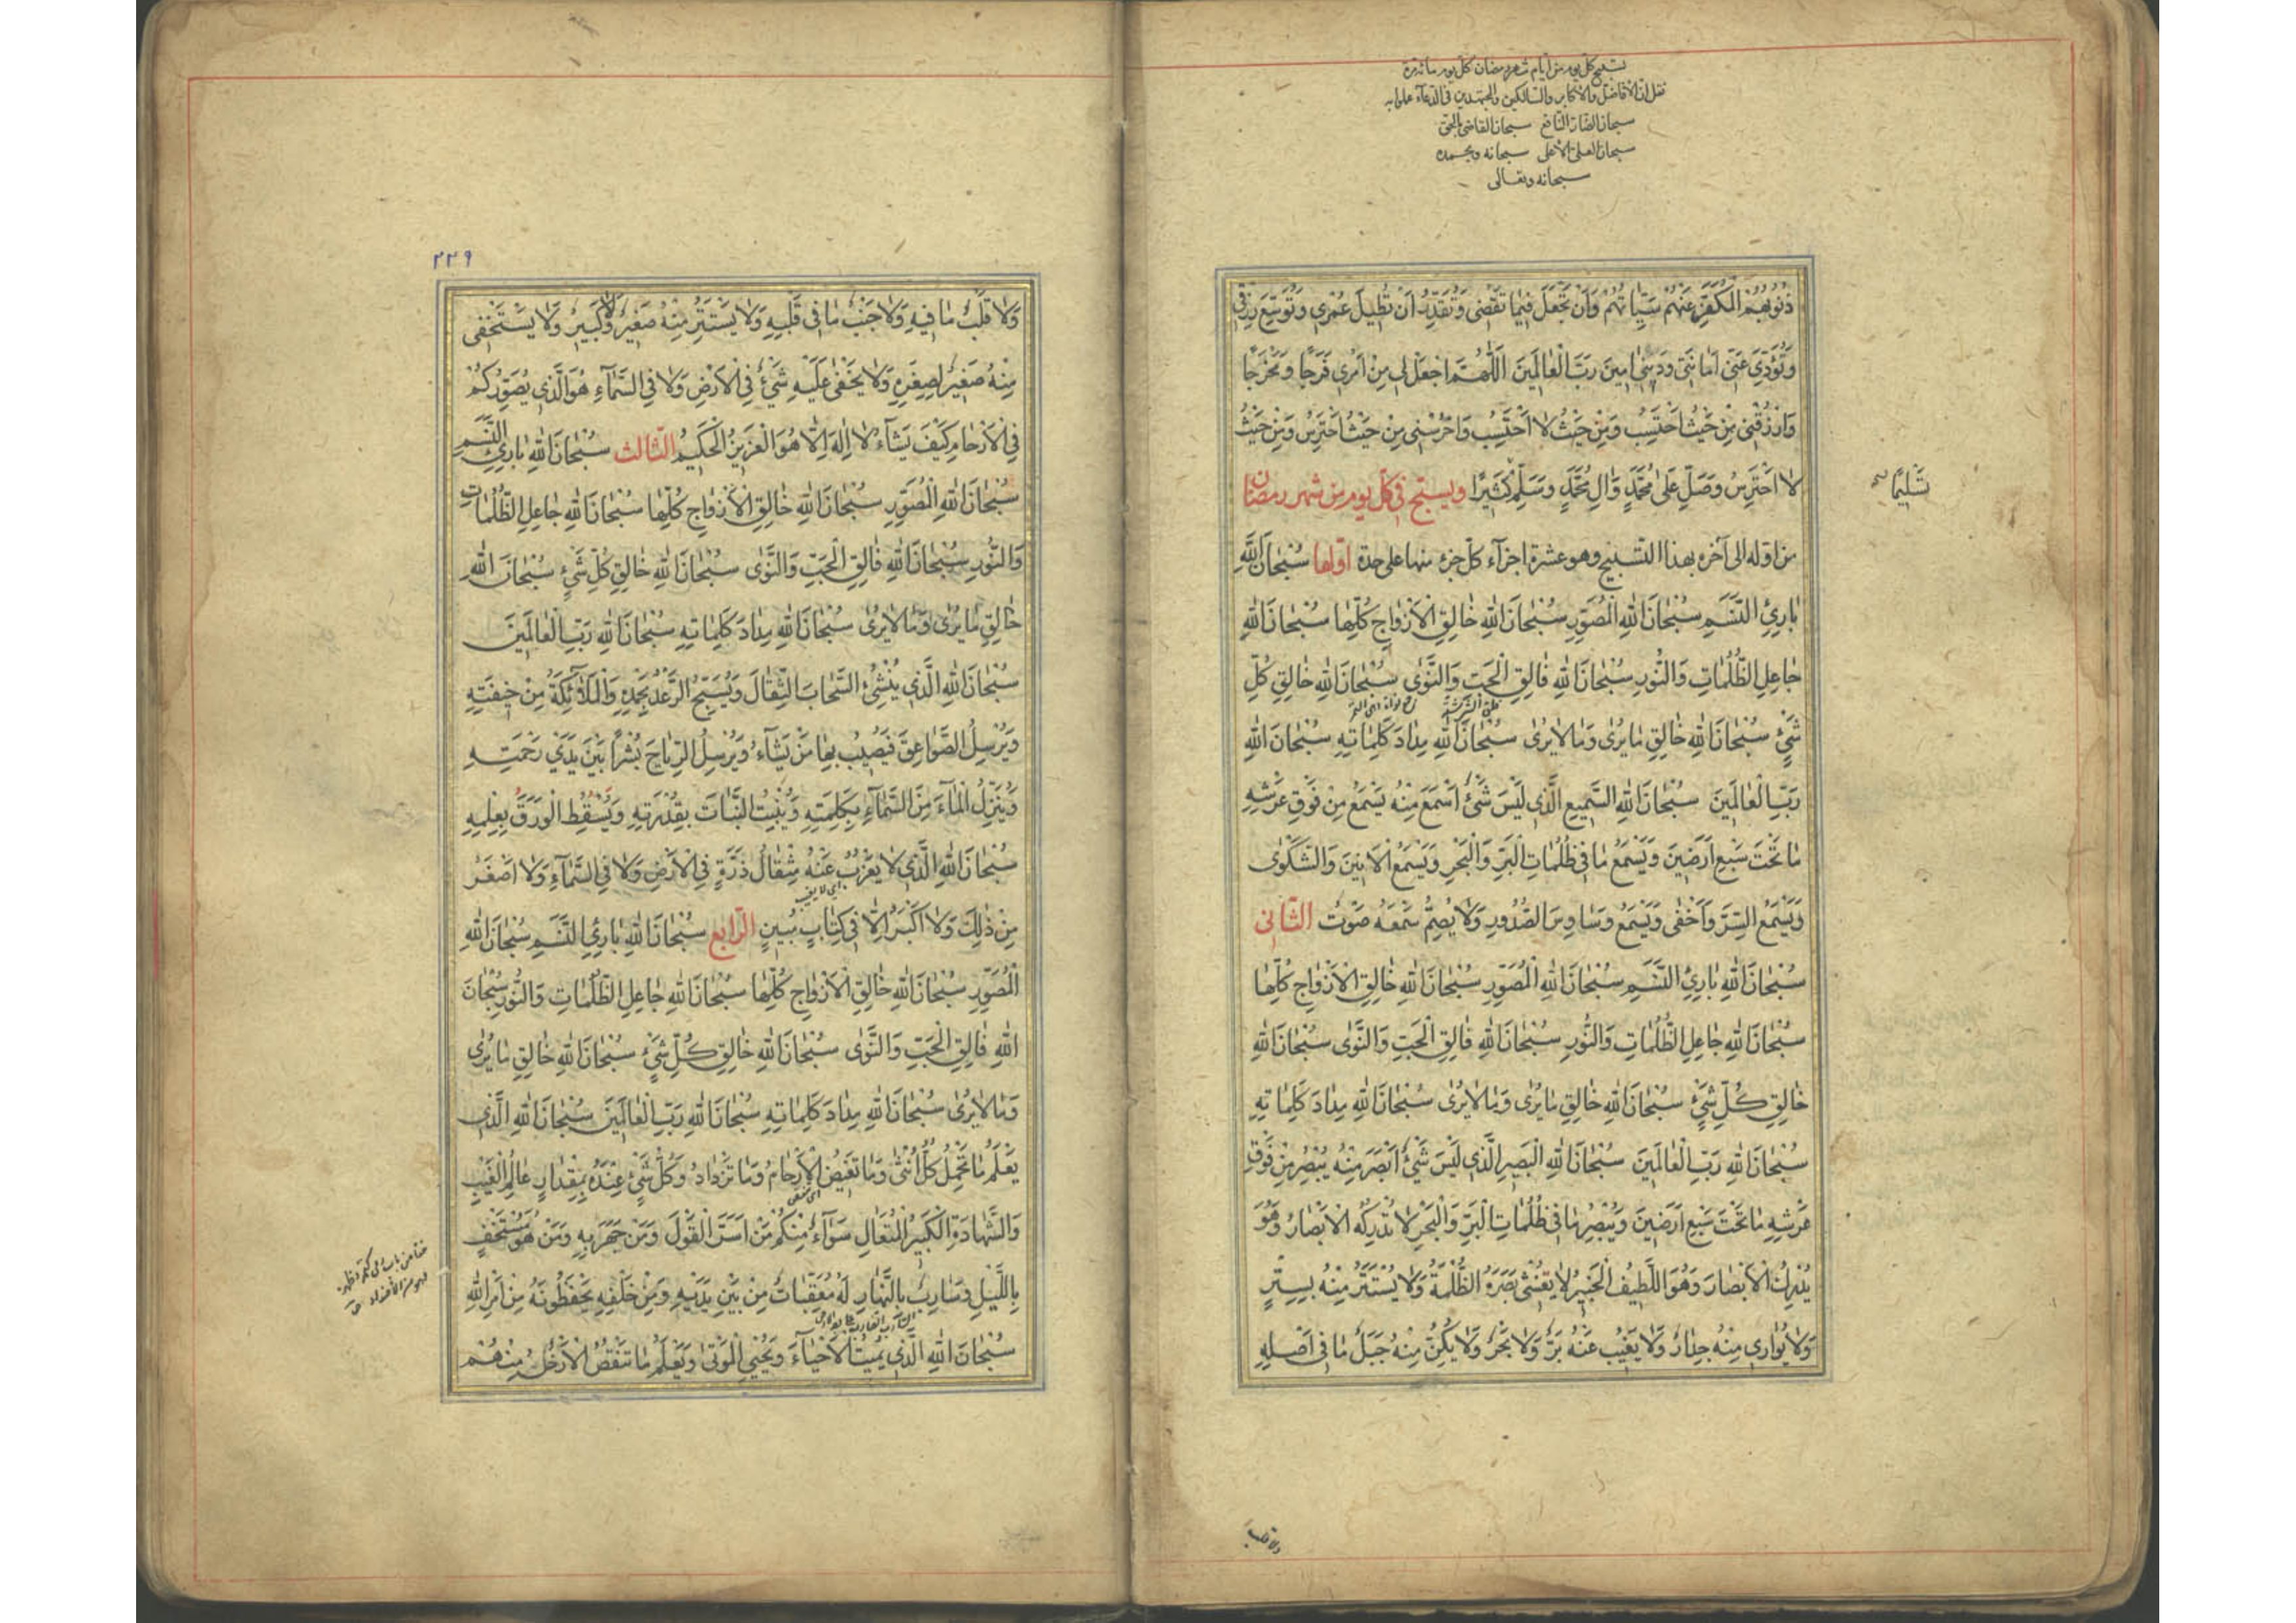 تسبيح كل يوم من ايام شهر رمضان كل يوم مائة مرة
نقل ان الأفاضل والأكابر والسالكين والمجتهدين في الدعآء علموا به
سبحان الضار النافع سبحان القاضي بالحق
سبحان العلي الأعلى سبحانه وبحمده
سبحانه وتعالى
ذُنُوبُهُمْ الْمُكَفَّرِ عَنْهُمْ سَيِّئَاتُهُمْ وَاَنْ تَجْعَلَ فيمَا تَقْضى وَتُقَدِّرُ اَنْ تُطيلَ عُمْرى وَتُوَسِّعَ رِزْقى
وَتُؤَدِّىَ عَنّى اَمَانَتى وَدَيْنى امينَ رَبَّ الْعَالَمينَ اَللّهُمَّ اجْعَلْ لى مِنْ اَمْرى فَرَجًا وَمَخْرَجًا
وَارْزُقْنى مِنْ حَيْثُ اَحْتَسِبُ وَمِنْ حَيْثُ لا اَحْتَسِبُ وَاحْرُسْنى مِنْ حَيْثُ اَحْتَرِسُ وَمِنْ حَيْثُ
لا اَحْتَرِسُ وَصَلِّ عَلى مُحَمَّدٍ وَالِ مُحَمَّدٍ وَسَلِّمْ كَثيرًا ويسبّح فى كلّ يوم من شهر رمضان
تَسْليمًا
من اوله الى آخره بهذا التسبيح وهو عشرة اجزآء كلّ جزء منها على حدة اوّلها سُبْحَانَ اللّهِ
بَارِئِ النَّسَمِ سُبْحَانَ اللّهِ الْمُصَوِّرِ سُبْحَانَ اللّهِ خَالِقِ الْاَزْوَاجِ كُلِّهَا سُبْحَانَ اللّهِ
جَاعِلِ الظُّلُمَاتِ وَالنُّورِ سُبْحَانَ اللّهِ فَالِقِ الْحَبِّ وَالنَّوى سُبْحَانَ اللّهِ خَالِقِ كُلِّ
شَىْءٍ سُبْحَانَ اللّهِ خَالِقِ مَا يُرى وَمَا لا يُرى سُبْحَانَ اللّهِ مِدَادَ كَلِمَاتِهِ سُبْحَانَ اللّهِ
رَبِّ الْعَالَمينَ سُبْحَانَ اللّهِ السَّميعِ الَّذى لَيْسَ شَىْءٌ اَسْمَعَ مِنْهُ يَسْمَعُ مِنْ فَوْقِ عَرْشِهِ
مَا تَحْتَ سَبْعِ اَرَضينَ وَيَسْمَعُ مَا فى ظُلُمَاتِ الْبَرِّ وَالْبَحْرِ وَيَسْمَعُ الْاَنينَ وَالشَّكْوى
وَيَسْمَعُ السِّرَّ وَاَخْفى وَيَسْمَعُ وَسَاوِسَ الصُّدُورِ وَلا يُصِمُّ سَمْعَهُ صَوْتٌ الثّانى
سُبْحَانَ اللّهِ بَارِئِ النَّسَمِ سُبْحَانَ اللّهِ الْمُصَوِّرِ سُبْحَانَ اللّهِ خَالِقِ الْاَزْوَاجِ كُلِّهَا
سُبْحَانَ اللّهِ جَاعِلِ الظُّلُمَاتِ وَالنُّورِ سُبْحَانَ اللّهِ فَالِقِ الْحَبِّ وَالنَّوى سُبْحَانَ اللّهِ
خَالِقِ كُلِّ شَىْءٍ سُبْحَانَ اللّهِ خَالِقِ مَا يُرى وَمَا لا يُرى سُبْحَانَ اللّهِ مِدَادَ كَلِمَاتِهِ
سُبْحَانَ اللّهِ رَبِّ الْعَالَمينَ سُبْحَانَ اللّهِ الْبَصيرِ الَّذى لَيْسَ شَىْءٌ اَبْصَرَ مِنْهُ يُبْصِرُ مِنْ فَوْقِ
عَرْشِهِ مَا تَحْتَ سَبْعِ اَرَضينَ وَيُبْصِرُ مَا فى ظُلُمَاتِ الْبَرِّ وَالْبَحْرِ لا تُدْرِكُه الْاَبْصَارُ وَهُوَ
يُدْرِكُ الْاَبْصَارَ وَهُوَ اللَّطيفُ الْخَبيرُ لا تُغْشى بَصَرَهُ الظُّلْمَةُ وَلا يُسْتَتَرُ مِنْهُ بِسِتْرٍ
وَلا يُوَارى مِنْهُ جِدَارٌ وَلا يَغيبُ عَنْهُ بَرٌّ وَلا بَحْرٌ وَلا يُكِنُّ مِنْهُ جَبَلٌ مَا فى اَصْلِهِ
ولا قلب
٢٢٩
وَلا قَلْبٌ مَا فيهِ وَلا جَنْبٌ مَا فى قَلْبِهِ وَلا يَسْتَتِرُ مِنْهُ صَغيرٌ وَلا كَبيرٌ وَلا يَسْتَخْفى
مِنْهُ صَغيرٌ لِصِغَرِهِ وَلا يَخْفى عَلَيْهِ شَىْءٌ فِى الْاَرْضِ وَلا فِى السَّمَآءِ هُوَ الَّذى يُصَوِّرُكُمْ
فِى الْاَرْحَامِ كَيْفَ يَشَآءُ لا اِلهَ اِلّا هُوَ الْعَزيزُ الْحَكيمُ الثّالث سُبْحَانَ اللّهِ بَارِئِ النَّسَمِ
سُبْحَانَ اللّهِ الْمُصَوِّرِ سُبْحَانَ اللّهِ خَالِقِ الْاَزْوَاجِ كُلِّهَا سُبْحَانَ اللّهِ جَاعِلِ الظُّلُمَاتِ
وَالنُّورِ سُبْحَانَ اللّهِ فَالِقِ الْحَبِّ وَالنَّوى سُبْحَانَ اللّهِ خَالِقِ كُلِّ شَىْءٍ سُبْحَانَ اللّهِ
خَالِقِ مَا يُرى وَمَا لا يُرى سُبْحَانَ اللّهِ مِدَادَ كَلِمَاتِهِ سُبْحَانَ اللّهِ رَبِّ الْعَالَمينَ
سُبْحَانَ اللّهِ الَّذى يُنْشِئُ السَّحَابَ الثِّقَالَ وَيُسَبِّحُ الرَّعْدُ بِحَمْدِهِ وَالْمَلآئِكَةُ مِنْ خيفَتِهِ
وَيُرْسِلُ الصَّوَاعِقَ فَيُصيبُ بِهَا مَنْ يَشَآءُ وَيُرْسِلُ الرِّيَاحَ بُشْرًا بَيْنَ يَدَىْ رَحْمَتِهِ
وَيُنَزِّلُ الْمَآءَ مِنَ السَّمَآءِ بِكَلِمَتِهِ وَيُنْبِتُ النَّبَاتَ بِقُدْرَتِهِ وَيَسْقُطُ الْوَرَقُ بِعِلْمِهِ
سُبْحَانَ اللّهِ الَّذى لا يَعْزُبُ عَنْهُ مِثْقَالُ ذَرَّةٍ فِى الْاَرْضِ وَلا فِى السَّمَآءِ وَلا اَصْغَرُ
مِنْ ذلِكَ وَلا اَكْبَرُ اِلّا فى كِتَابٍ مُبينٍ الرّابع سُبْحَانَ اللّهِ بَارِئِ النَّسَمِ سُبْحَانَ اللّهِ
الْمُصَوِّرِ سُبْحَانَ اللّهِ خَالِقِ الْاَزْوَاجِ كُلِّهَا سُبْحَانَ اللّهِ جَاعِلِ الظُّلُمَاتِ وَالنُّورِ سُبْحَانَ
اللّهِ فَالِقِ الْحَبِّ وَالنَّوى سُبْحَانَ اللّهِ خَالِقِ كُلِّ شَىْءٍ سُبْحَانَ اللّهِ خَالِقِ مَا يُرى
وَمَا لا يُرى سُبْحَانَ اللّهِ مِدَادَ كَلِمَاتِهِ سُبْحَانَ اللّهِ رَبِّ الْعَالَمينَ سُبْحَانَ اللّهِ الَّذى
يَعْلَمُ مَا تَحْمِلُ كُلُّ اُنْثى وَمَا تَغيضُ الْاَرْحَامُ وَمَا تَزْدَادُ وَكُلُّ شَىْءٍ عِنْدَهُ بِمِقْدَارٍ عَالِمُ الْغَيْبِ
وَالشَّهَادَةِ الْكَبيرُ الْمُتَعَالِ سَوَآءٌ مِنْكُمْ مَنْ اَسَرَّ الْقَوْلَ وَمَنْ جَهَرَ بِهِ وَمَنْ هُوَ مُسْتَخْفٍ
بِاللَّيْلِ وَسَارِبٌ بِالنَّهَارِ لَهُ مُعَقِّبَاتٌ مِنْ بَيْنِ يَدَيْهِ وَمِنْ خَلْفِهِ يَحْفَظُونَهُ مِنْ اَمْرِ اللّهِ
سُبْحَانَ اللّهِ الَّذى يُميتُ الْاَحْيَآءَ وَيُحْيِى الْمَوْتى وَيَعْلَمُ مَا تَنْقُصُ الْاَرْضُ مِنْهُمْ